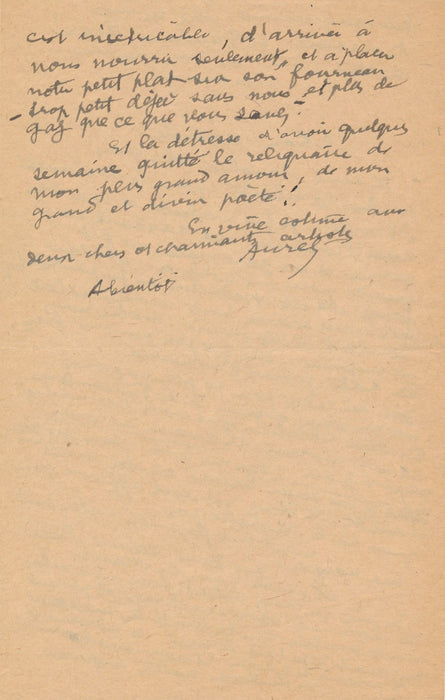 est inextricable, d'arriver à
nous nourrir seulement, et à placer
notre petit plat sur son fourneau
- trop petit déjà sans nous, et plus de
gaz que ce que vous savez -
Et la détresse d'avoir quelques
semaine quitté le reliquaire de
mon plus grand amour, de mon
grand et divin poète!
En vive estime aux
deux chers et charmants artistes
Aurel
A bientôt